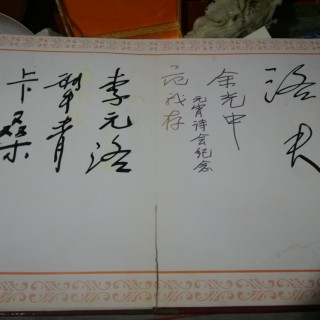 洛夫
余光中
元宵诗会纪念
范我存
李元洛
犁青
卡桑